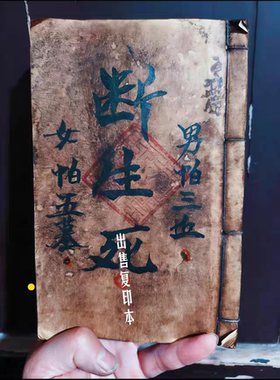 男怕三五
断生死
女怕五墓
出售复印本